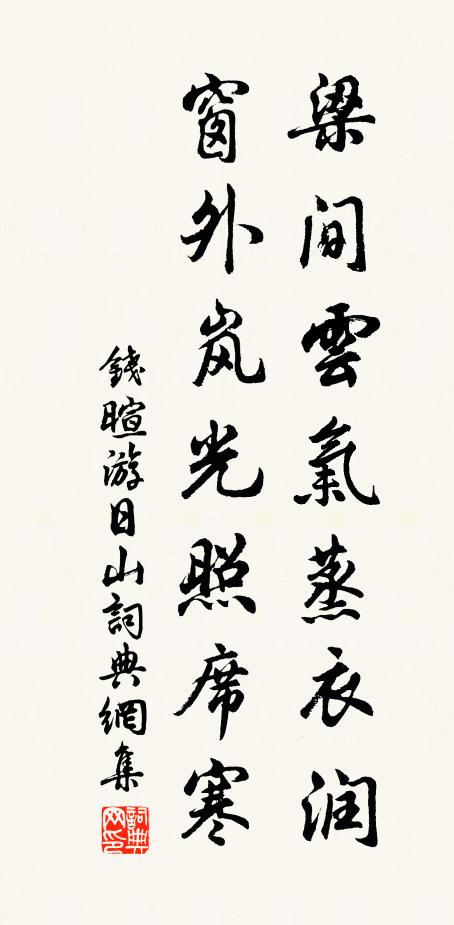 梁间雲氣蒸衣润
窗外岚光照席寒
錢暄游日山詞典網集
詞典
网印